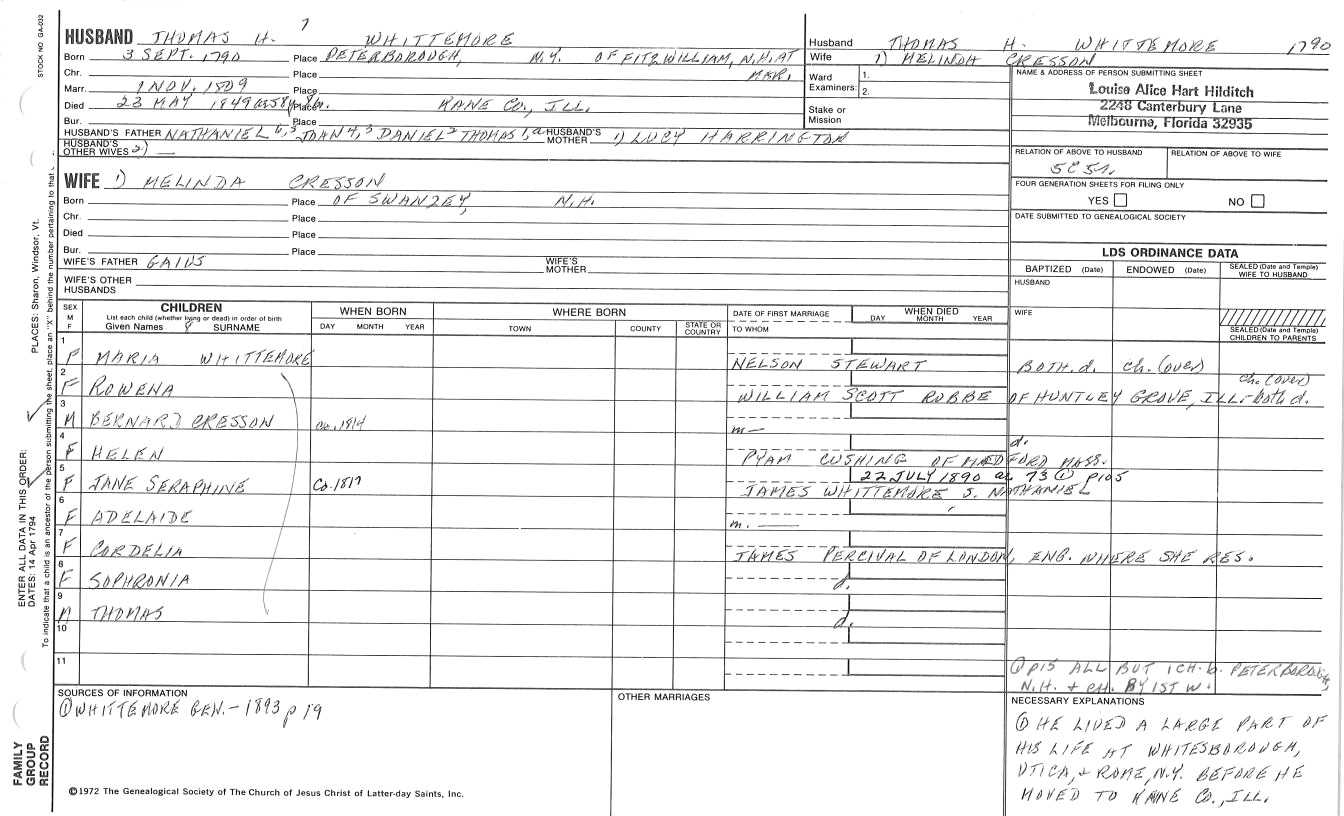 STOCK NO GA-032
HUSBAND THOMAS H. 7 WHITTEMORE
Born 3 SEPT. 1790 Place PETERBOROUGH, N.Y. OF FITZWILLIAM, N.H. AT
Chr. Place MAR.
Marr. 1 NOV. 1809 Place
Died 23 MAY 1849 Place KANE CO., ILL.
Bur. Place
HUSBAND'S FATHER NATHANIEL 6, 5 JOHN 4, 3 DANIEL 2 THOMAS 1, a HUSBAND'S MOTHER 1) LUCY HARRINGTON
HUSBAND'S OTHER WIVES 2) —
Husband THOMAS H. WHITTEMORE 1790
Wife 1) MELINDA CRESSON
Ward Examiners: 1.
2.
Stake or Mission
NAME & ADDRESS OF PERSON SUBMITTING SHEET
Louise Alice Hart Hilditch
2248 Canterbury Lane
Melbourne, Florida 32935
RELATION OF ABOVE TO HUSBAND RELATION OF ABOVE TO WIFE
FOUR GENERATION SHEETS FOR FILING ONLY
YES NO
DATE SUBMITTED TO GENEALOGICAL SOCIETY
WIFE 1) MELINDA CRESSON
Born Place OF SWANZEY, N.H.
Chr. Place
Died Place
Bur. Place
WIFE'S FATHER GAIUS WIFE'S MOTHER
WIFE'S OTHER HUSBANDS
LDS ORDINANCE DATA
BAPTIZED (Date) ENDOWED (Date) SEALED (Date and Temple) WIFE TO HUSBAND
HUSBAND
WIFE
SEALED (Date and Temple) CHILDREN TO PARENTS
SEX M F CHILDREN WHEN BORN WHERE BORN DATE OF FIRST MARRIAGE WHEN DIED
List each child (whether living or dead) in order of birth
Given Names SURNAME DAY MONTH YEAR TOWN COUNTY STATE OR COUNTRY TO WHOM DAY MONTH YEAR
1 F MARIA WHITTEMORE NELSON STEWART BOTH d. ch. (over)
ch. (over)
2 F ROWENA WILLIAM SCOTT ROBBE OF HUNTLEY GROVE, ILL. - both d.
3 M BERNARD CRESSON ca. 1814 m —
d.
4 F HELEN PYAM CUSHING OF MEDFORD MASS.
22 JULY 1890 ae 73 ① p105
5 F JANE SERAPHINE Ca. 1817 JAMES WHITTEMORE S. NATHANIEL
6 F ADELAIDE m. —
7 F CORDELIA JAMES PERCIVAL OF LONDON, ENG. WHERE SHE RES.
8 F SOPHRONIA d.
9 M THOMAS d.
10
11
① p15 ALL BUT 1 CH. b. PETERBOROUGH,
N.H. + CH. BY 1ST W.
SOURCES OF INFORMATION
① WHITTEMORE GEN. - 1893 p 19
OTHER MARRIAGES
NECESSARY EXPLANATIONS
① HE LIVED A LARGE PART OF
HIS LIFE AT WHITESBOROUGH,
UTICA, + ROME, N.Y. BEFORE HE
MOVED TO KANE CO., ILL.
©1972 The Genealogical Society of The Church of Jesus Christ of Latter-day Saints, Inc.
FAMILY GROUP RECORD
ENTER ALL DATA IN THIS ORDER:
DATES: 14 Apr 1794 PLACES: Sharon, Windsor, Vt.
To indicate that a child is an ancestor of the person submitting the sheet, place an "X" behind the number pertaining to that